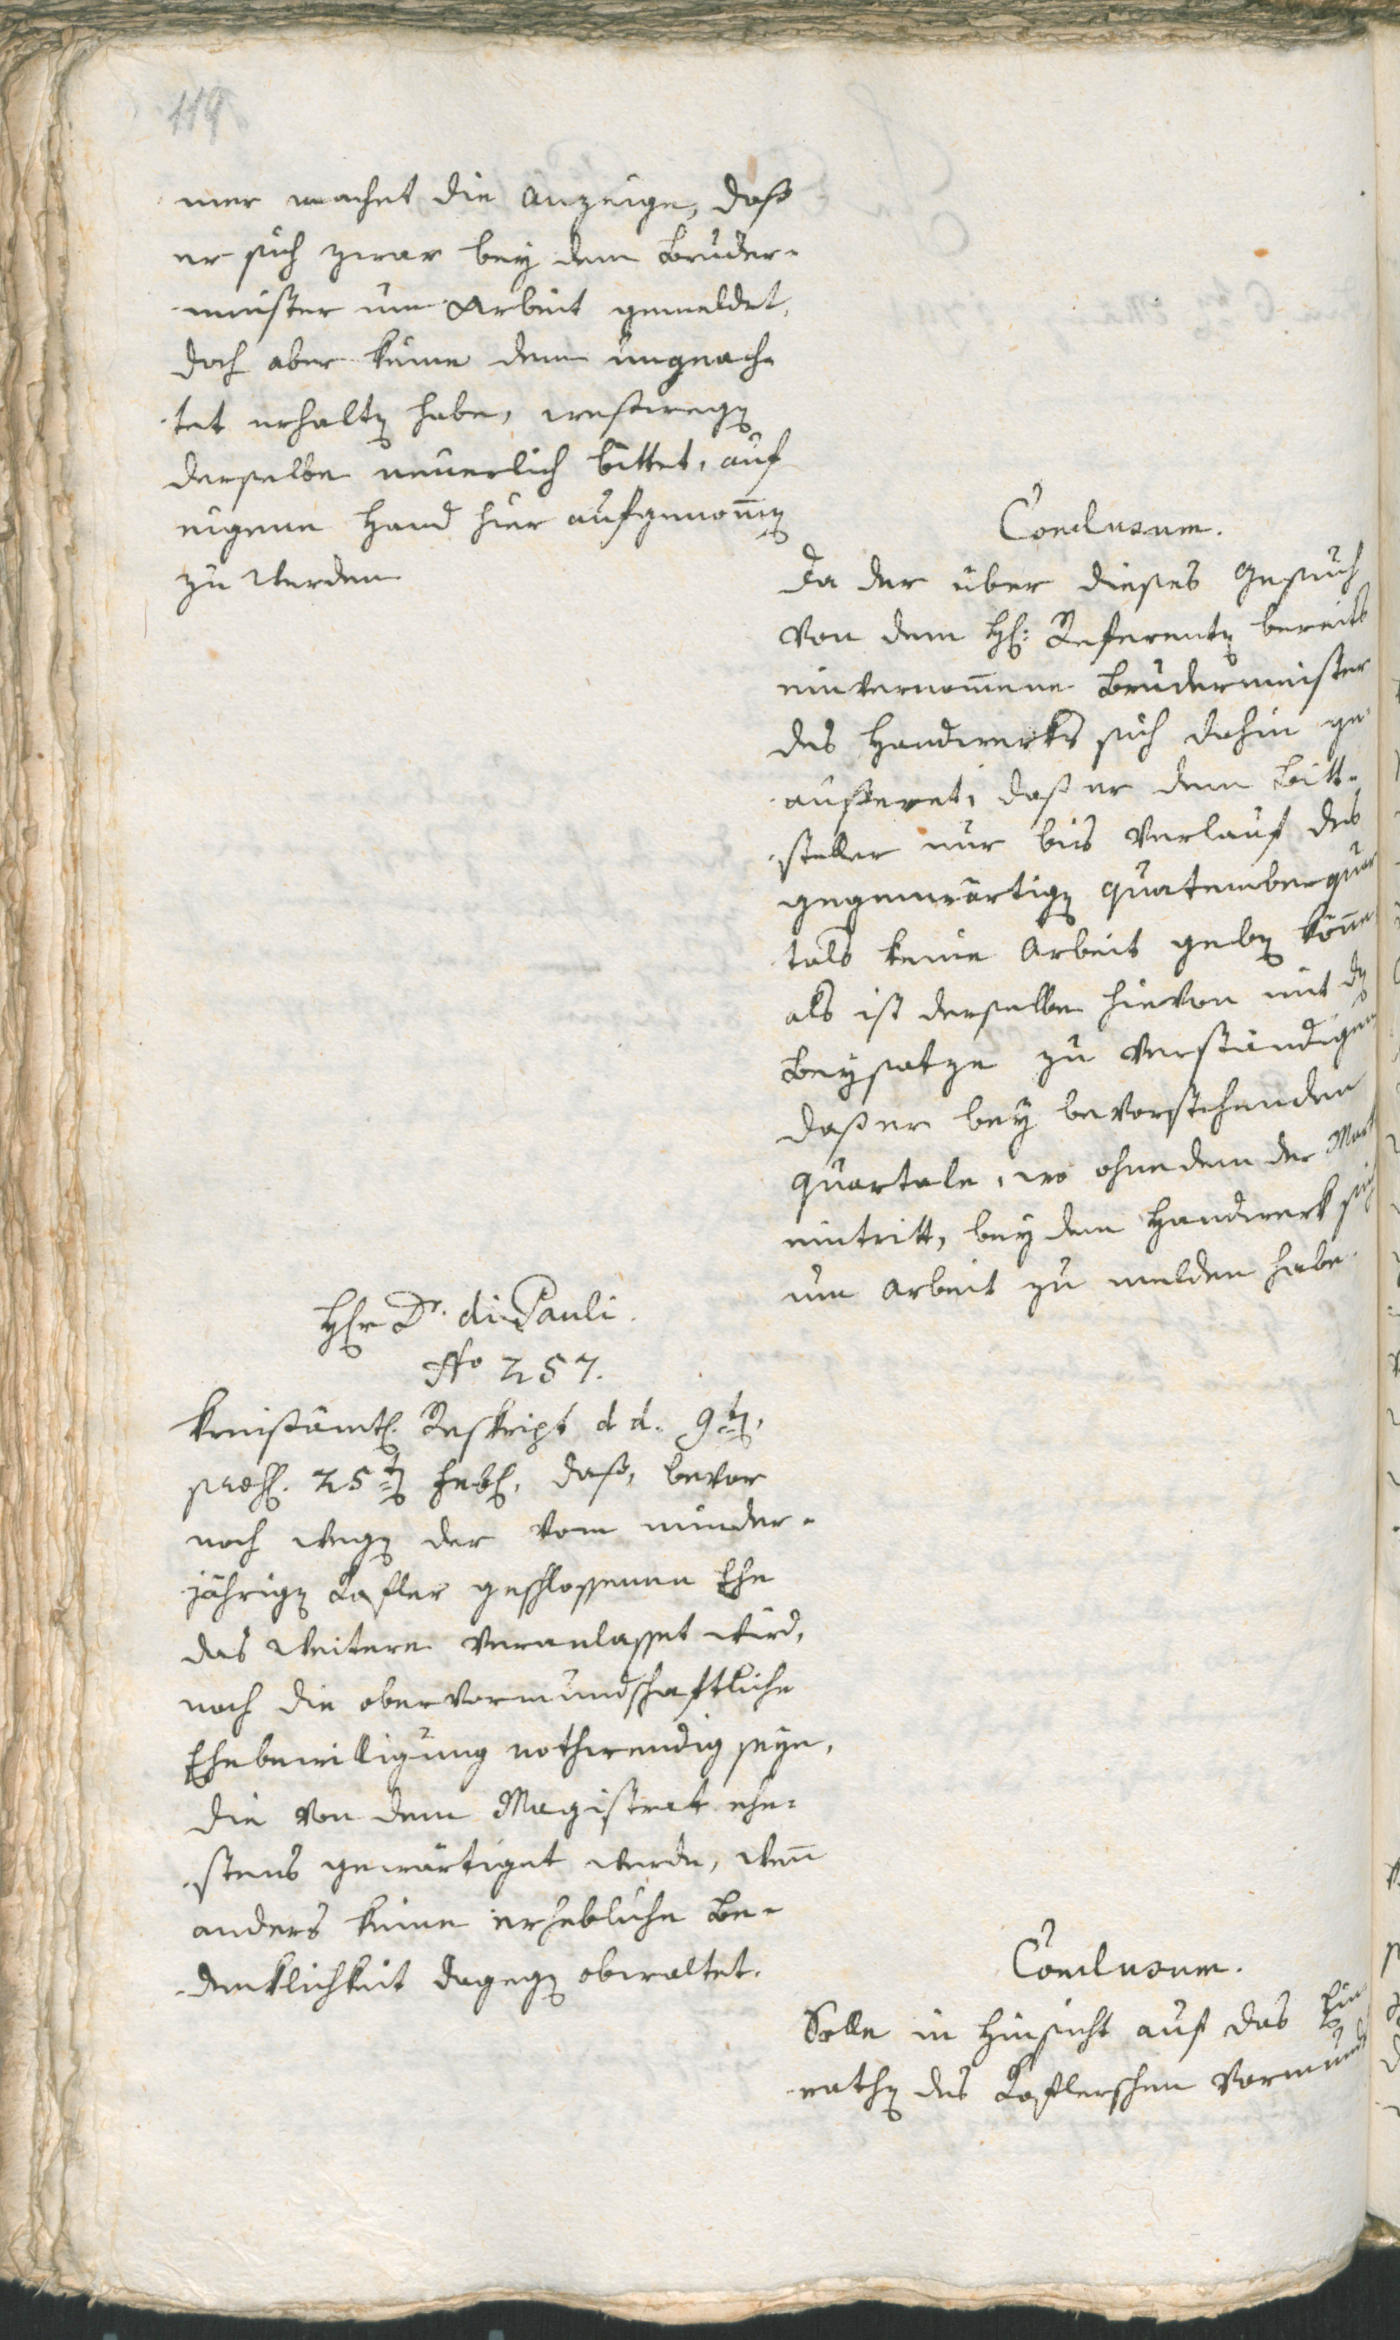 119
mer machet die Anzeige, daß
er sich zwar bey dem Bruder-
meister um Arbeit gemeldet,
doch aber keine dem ungeach-
tet erhalten habe, weßwegen
derselbe neuerlich bittet, auf
eigene Hand hier aufgenom̄en
zu werden
Conclusum.
Da der über dieses Gesuch
von dem H: Referenten bereits
einvernom̄ene Brudermeister
des Handwerks sich dahin ge-
äußeret, daß er dem Bitt-
steller nur bis Verlauf des
gegenwärtigen Quatemberquar
tals keine Arbeit geben kön̄e
als ist derselbe hievon mit dem
Beysatze zu verständigen
daß er bey bevorstehenden
Quartale, wo ohnedem der
eintritt, bey dem Handwerk sich
um Arbeit zu melden habe.
Herr Dr. di Pauli.
No 257.
Kreisämtl. Reskript d d. 9ten,
præs. 25ten Feb. daß, bevor
noch wegen der vom minder-
jährigen Kofler geschlossenen Ehe
das Weitere veranlasset wird,
noch die obervormundschaftliche
Ehebewilligung nothwendig seye,
die von dem Magistrat ehe-
stens gewärtiget werde, wen̄
anders keine erhebliche Be-
denklichkeit dagegen obwaltet.
Conclusum.
Solle in Hinsicht auf das Ein
rathen des Koflerschen Vormund